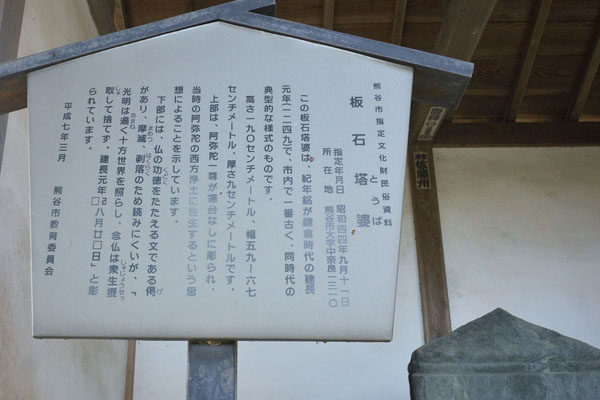 熊谷市指定文化財民俗資料
板石塔婆
とうば
指定年月日 昭和四四年九月十一日
所在地 熊谷市大字中奈良一三一〇
この板石塔婆は、紀年銘が鎌倉時代の建長
元年(一二四九)で、市内で一番古く、同時代の
典型的な様式のものです。
高さ一九〇センチメートル、幅五九~六七
センチメートル、厚さ九センチメートルです。
上部は、阿弥陀一尊が蓮台なしに彫られ、
当時の阿弥陀の西方浄土に往生するという思
想によることを示しています。
下部には、仏の功徳をたたえる文である偈
くどく
げ
があり、摩滅、剥落のため読みにくいが、「
まめつ
はくらく
光明は遍く十方世界を照らし、念仏は衆生摂
あまね
しゅじょうせっ
取して捨てず。建長元年己八月廿□日」と彫
しゅ
られています。
平成七年三月
熊谷市教育委員会